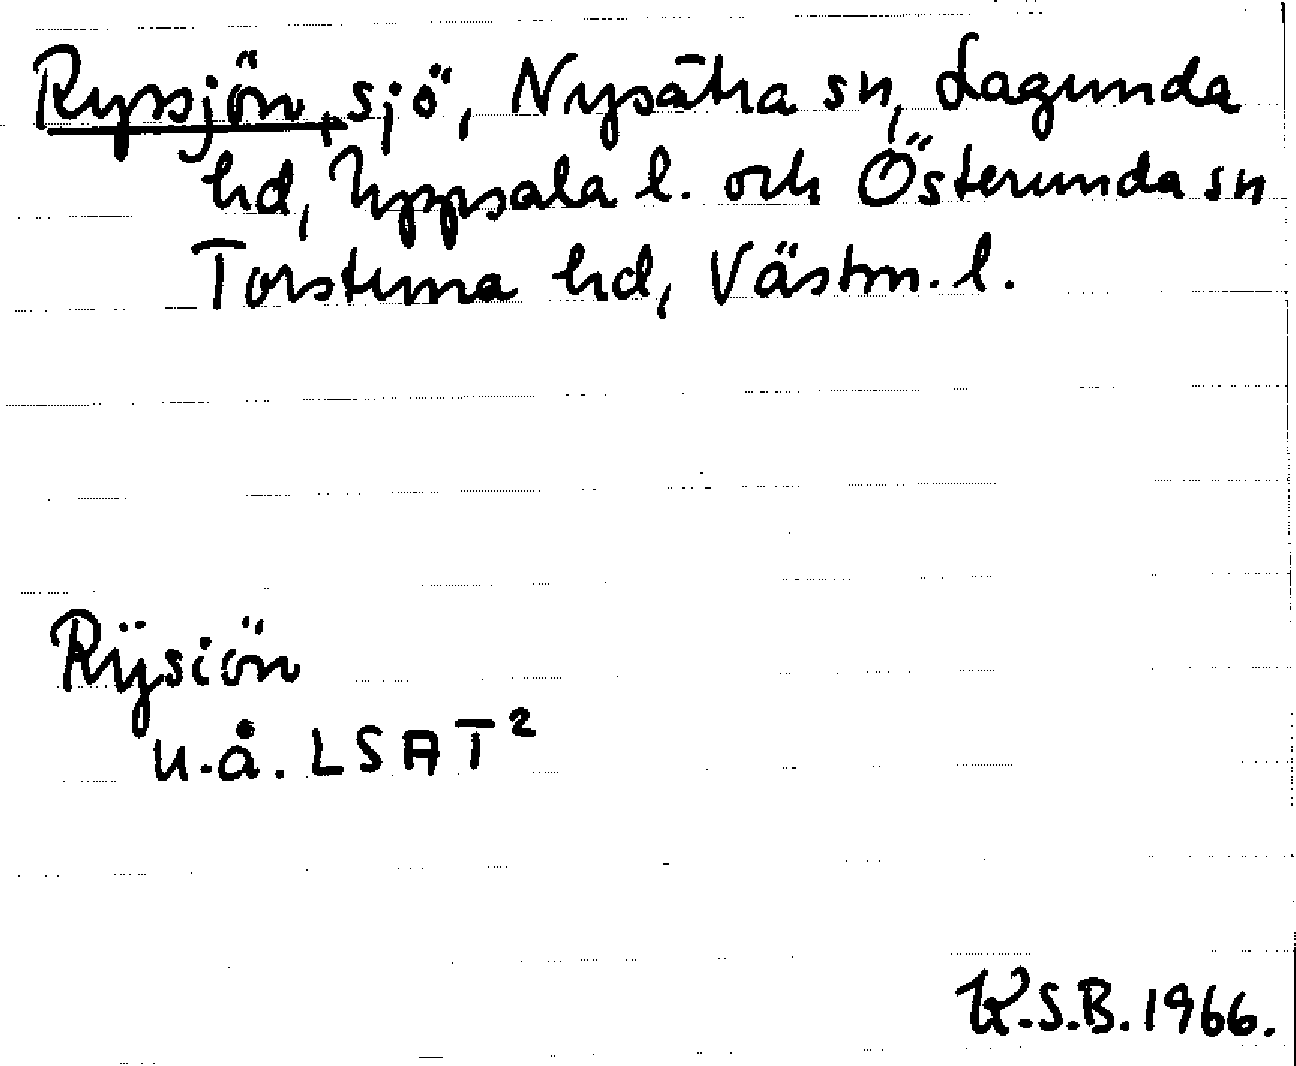 Ryssjön, sjö, Nysätra sn, Lagunda
hd, Uppsala l. och Österunda sn
Torstuna hd, Västm. l.
Rÿsiön
u.å. LSAT²
K.S.B. 1966.